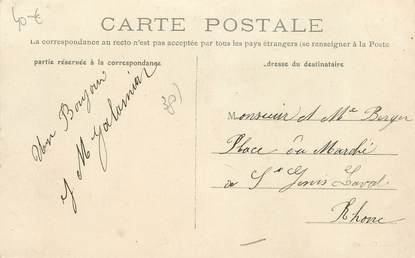 40-€
CARTE POSTALE
La correspondance au recto n'est pas acceptée par tous les pays étrangers (se renseigner à la Poste
partie réservée à la correspondance
adresse du destinataire
Un Bonjour
Monsieur et Me Berger
Place du Marché
à St Genis Laval
Rhone